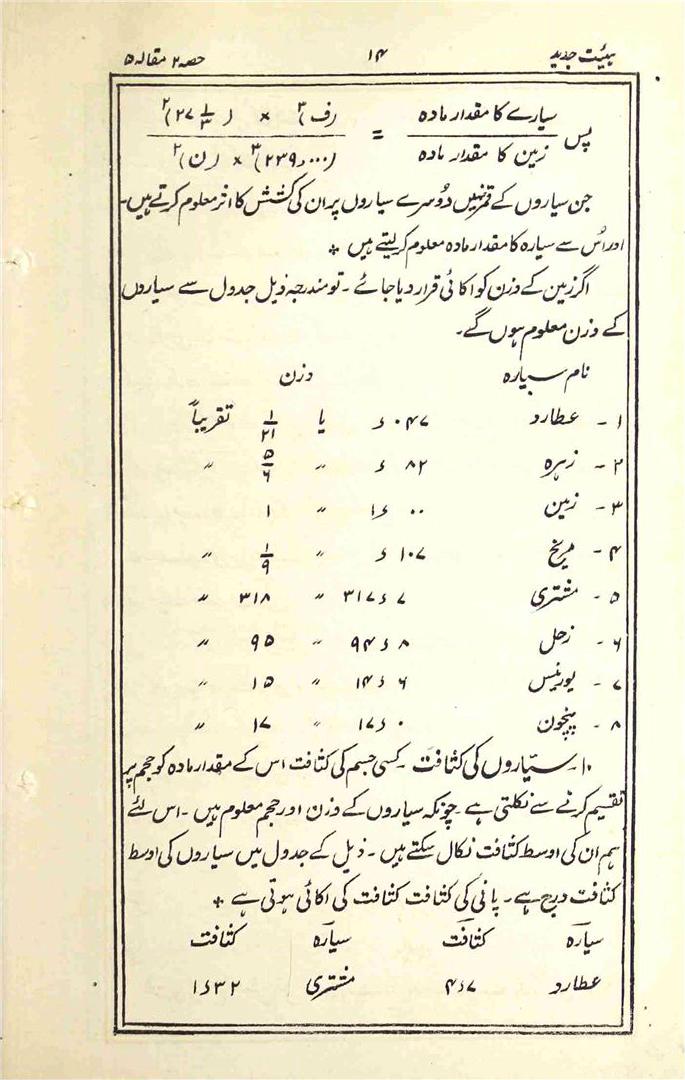 ہیئت جدید ۱۴ حصہ ۲ مقالہ ۵
پس سیارے کا مقدار مادہ / زمین کا مقدار مادہ = (ف)۳ × (۲۷ ۱/۳)۲ / (۲۳۹٫۰۰۰)۳ × (ن)۲
جن سیاروں کے قمر نہیں دُوسرے سیاروں پر ان کی کشش کا اثر معلوم کرتے ہیں۔
اور اُس سے سیارہ کا مقدار مادہ معلوم کر لیتے ہیں ٭
اگر زمین کے وزن کو اکائی قرار دیا جائے۔ تو مندرجہ ذیل جدول سے سیاروں
کے وزن معلوم ہوں گے۔
نام سیارہ وزن
۱۔ عطارد ۰۴۷ء یا ۱/۲۱ تقریباً
۲۔ زہرہ ۸۲ء " ۵/۶ "
۳۔ زمین ۱ء۰۰ " ۱
۴۔ مریخ ۱۰۷ء " ۱/۹ "
۵۔ مشتری ۳۱۷ء۷ " ۳۱۸ "
۶۔ زحل ۹۴ء۸ " ۹۵ "
۷۔ یورنیس ۱۴ء۶ " ۱۵ "
۸۔ نپچون ۱۷ء۰ " ۱۷ "
۱۰۔ سیّاروں کی کثافت۔ کسی جسم کی کثافت اس کے مقدار مادہ کو حجم پر
تقسیم کرنے سے نکلتی ہے۔ چونکہ سیاروں کے وزن اور حجم معلوم ہیں۔ اس لئے
ہم ان کی اوسط کثافت نکال سکتے ہیں۔ ذیل کے جدول میں سیاروں کی اوسط
کثافت درج ہے۔ پانی کی کثافت کثافت کی اکائی ہوتی ہے ٭
سیارہ کثافت سیارہ کثافت
عطارد ۴ء۷ مشتری ۱ء۳۲